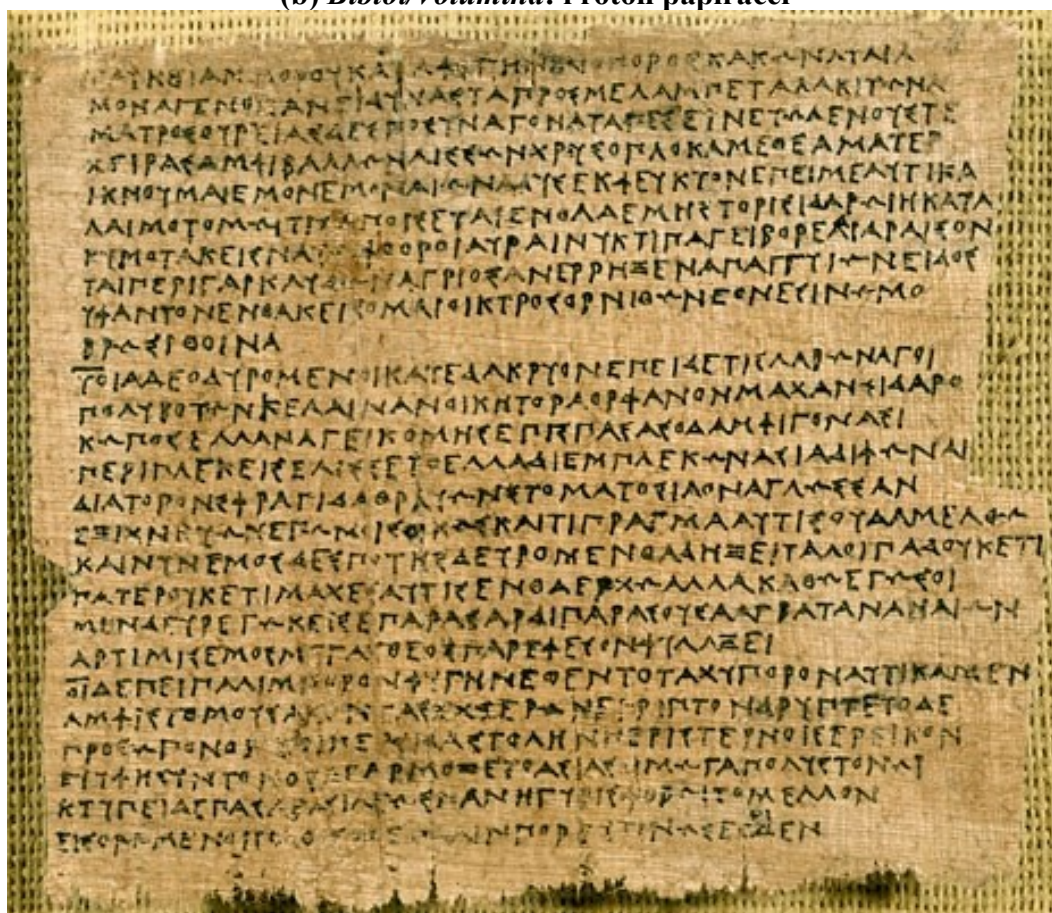 (b) Bibloi/Volumina: rotoli papiracei
ΟΠΟΡΟΣΚΑΚΩΝ
ΜΟΝΑΓΕΝΟΙΣΑΝ ΠΡΟΣΜΕΛΑΜΠΕΤΑΛΑΚΙΤΩΝΑ
ΜΑΤΡΟΣΟΥΡΕΙΑΣΔΕΣΠΟΣΥΝΑΓΟΝΑΤΑΠΕΣΕΙΝΕΥΩΛΕΝΟΥΣΤΕ
ΧΕΙΡΑΣΑΜΦΙΒΑΛΛΩΝΛΙΣΣΩΝΧΡΥΣΟΠΛΟΚΑΜΕΘΕΑΜΑΤΕΡ
ΙΚΝΟΥΜΑΙΕΜΟΝΕΜΟΝΑΙΩΝΑΔΥΣΕΚΦΕΥΚΤΟΝΕΠΕΙΜΕΑΥΤΙΚΑ
ΛΑΙΜΟΤΟΜΩΙΤΙΣΑΠΟΙΣΕΤΑΙΕΝΘΑΔΕΜΗΣΤΟΡΙΣΙΔΑΡΩΙΗΚΑΤΑ
ΚΥΜΟΤΑΚΕΙΣΝΑΥΣΙΦΘΟΡΟΙΑΥΡΑΙΝΥΚΤΙΠΑΓΕΙΒΟΡΕΑΙΔΙΑΡΑΙΣΟΝ
ΤΑΙΠΕΡΙΓΑΡΚΛΥΔΩΝΑΓΡΙΟΣΑΝΕΡΡΗΞΕΝΑΠΑΓΓΥΙΩΝΕΙΔΟΣ
ΥΦΑΝΤΟΝΕΝΘΑΚΕΙΣΟΜΑΙΟΙΚΤΡΟΣΟΡΝΙΘΩΝΕΘΝΕΣΙΝΩΜΟ
ΒΡΩΣΙΘΟΙΝΑ
ΤΟΙΑΔΕΟΔΥΡΟΜΕΝΟΙΚΑΤΕΔΑΚΡΥΟΝΕΠΕΙΔΕΤΙΣΛΑΒΩΝΑΓΟΙ
ΠΟΛΥΒΟΤΩΝΚΕΛΑΙΝΑΝΟΙΚΗΤΟΡΑΟΡΦΑΝΟΝΜΑΧΑΝΣΙΔΑΡΟ
ΚΩΠΟΣΕΛΛΑΝΑΓΕΙΚΟΜΗΣΕΠΙΣΠΑΣΑΣΟΔΑΜΦΙΓΟΝΑΣΙ
ΠΕΡΙΠΛΕΚΕΙΣΕΛΙΣΣΕΤΟΕΛΛΑΔΙΕΜΠΛΕΚΩΝΑΣΙΑΔΙΦΩΝΑΙ
ΔΙΑΤΟΡΟΝΣΦΡΑΓΙΔΑΘΡΑΥΩΝΣΤΟΜΑΤΟΣΙΑΟΝΑΓΛΩΣΣΑΝ
ΕΞΙΧΝΕΥΩΝΕΓΩΜΟΙΣΟΙΚΩΣΚΑΙΤΙΠΡΑΓΜΑΑΥΤΙΣΟΥΔΑΜΕΛΘΩ
ΚΑΙΝΥΝΕΜΟΣΔΕΣΠΟΤΗΣΔΕΥΡΟΜΕΝΘΑΔΗΞΕΙΤΑΛΟΙΠΑΔΟΥΚΕΤΙ
ΠΑΤΕΡΟΥΚΕΤΙΜΑΧΕΣΑΥΤΙΣΕΝΘΑΕΡΧΩΑΛΛΑΚΑΘΩΕΓΩΣΟΙ
ΜΕΝΔΕΥΡΕΓΩΚΕΙΣΕΠΑΡΑΣΑΡΔΙΠΑΡΑΣΟΥΣΑΑΓΒΑΤΑΝΑΝΑΙΩΝ
ΑΡΤΙΜΙΣΕΜΟΣΜΕΓΑΣΘΕΟΣΠΑΡΕΦΕΣΟΝΦΥΛΑΞΕΙ
ΟΙΔΕΠΕΙΠΑΛΙΜΠΟΡΟΝΦΥΓΗΝΕΘΕΝΤΟΤΑΧΥΠΟΡΟΝΑΥΤΙΚΑΜΕΝ
ΑΜΦΙΣΤΟΜΟΥΣΑΚΟΝΤΑΣΕΚΧΕΡΩΝΕΡΡΙΠΤΟΝΔΡΥΠΤΕΤΟΔΕ
ΠΡΟΣΩΠΟΝΟΝΥΞΙΠΕΡΣΙΔΑΣΤΟΛΗΝΠΕΡΙΣΤΕΡΝΟΙΣΕΡΕΙΚΟΝ
ΕΥΥΦΗΣΥΝΤΟΝΟΣΔΑΡΜΟΖΕΤΟΑΣΙΑΣΟΙΜΩΓΑΠΟΛΥΣΤΟΝΩΙ
ΚΤΥΠΕΙ ΠΑΝΗΓΥΡΙΣΦΟΒΩΙΤΟΜΕΛΛΟΝ
ΕΙΣΟΡΩΜΕΝΟΙ